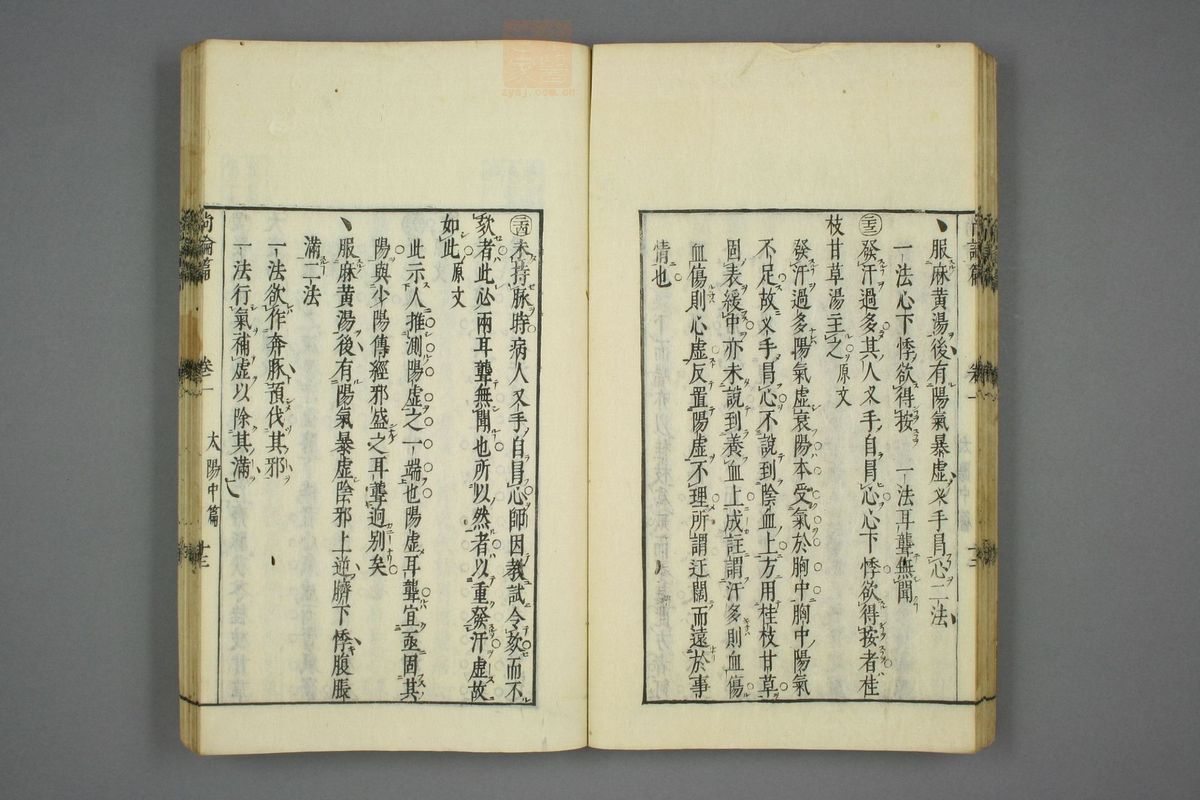 服麻黄湯後有陽氣暴虛叉手冒心二法
一法心下悸欲得按 一法耳聾無聞
㊂發汗過多其人叉手自冒心心下悸欲得按者桂
枝甘草湯主之原文
發汗過多陽氣虛衰陽本受氣於胸中胸中陽氣
不足故叉手冒心不說到陰血上方用桂枝甘草
固表緩中亦未說到養血上成註謂汗多則血傷
血傷則心虛反置陽虛不理所謂迂闊而遠於事
情也
未持脉時病人叉手自冒心師因教試令欬而不
欬者此必兩耳聾無聞也所以然者以重發汗虛故
如此原文
此示人推測陽虛之一端也陽虛耳聾宜亟固其
陽與少陽傳經邪盛之耳聾迥别矣
服麻黄湯後有陽氣暴虛陰邪上逆臍下悸腹脹
滿二法
一法欲作奔豚預伐其邪
一法行氣補虛以除其滿
尚論篇 卷一 太陽中篇 十三
zysj.com.cn